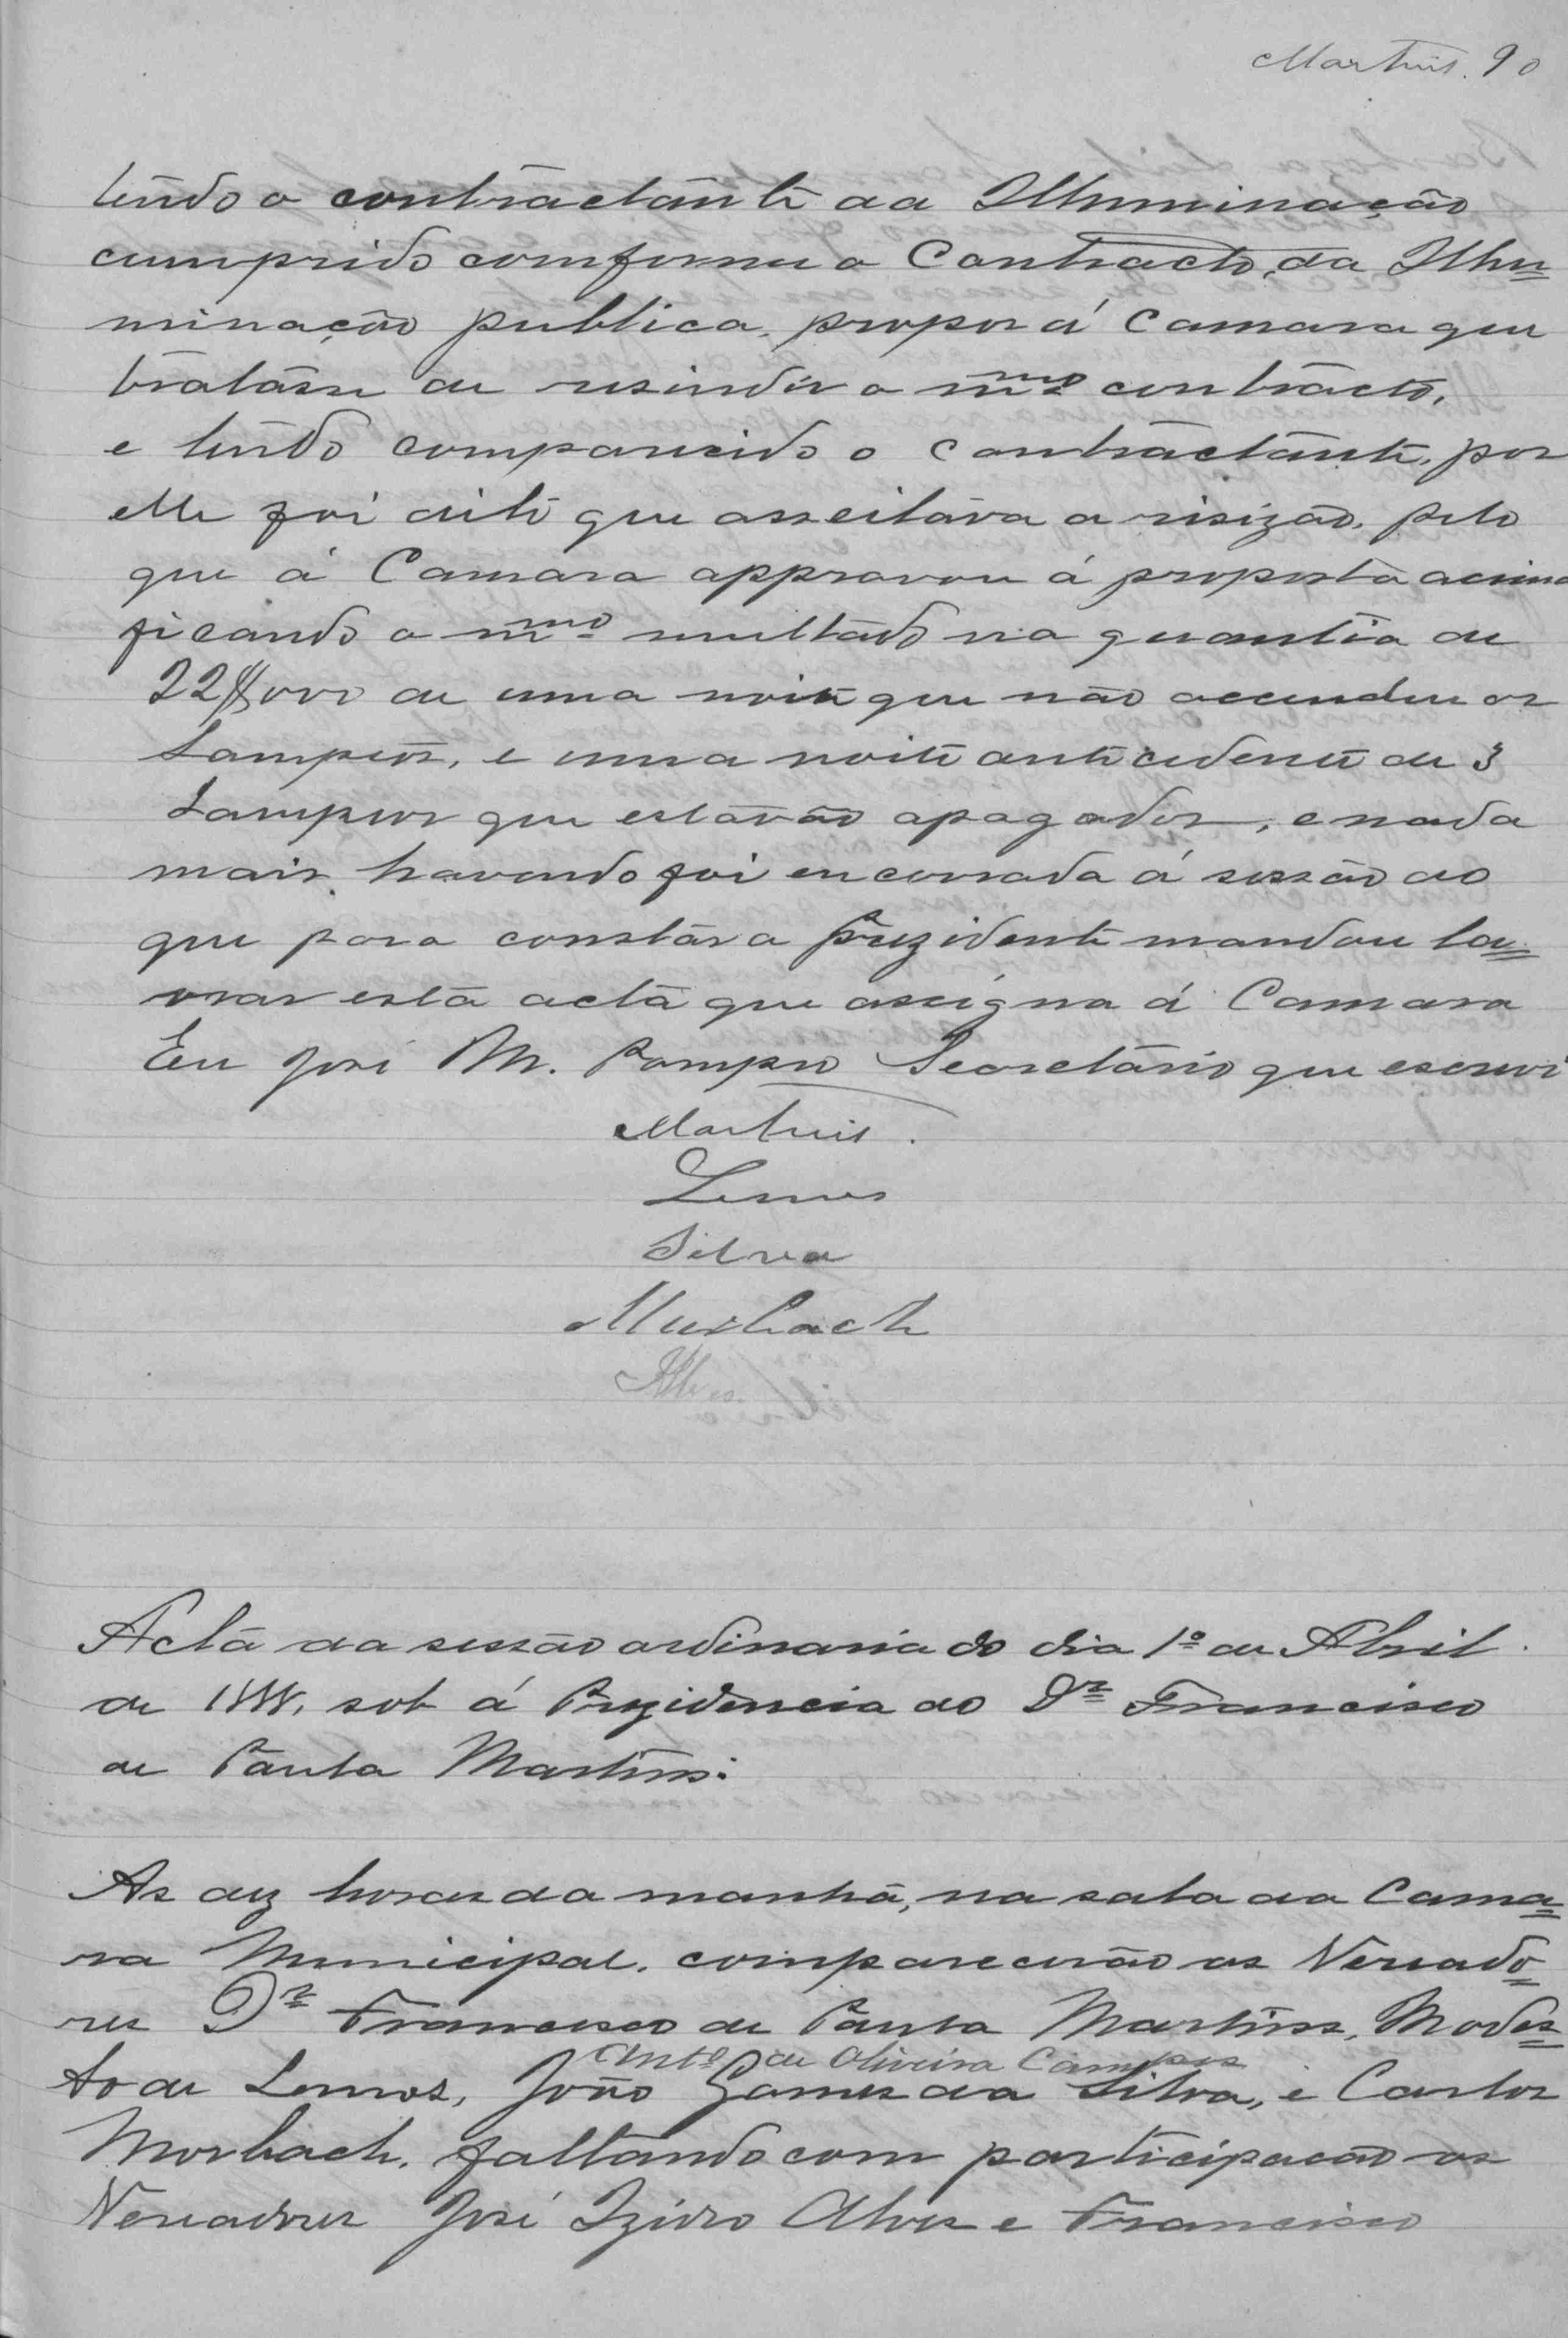 Martins. 90
tendo o contractante da Illuminação
cumprido comforme o Contracto, da Illu=
minação publica, propos á Camara que
tratásse de resindir o mmo contracto,
e tendo comparecido o contractante, por
elle foi dito que asseitava a risizão, pelo
que á Camara approvou á proposta acima
ficando o mmo multádo na quantia de
22$000 de uma noite que não accendeu os
Lampeos, e uma noite antecedente de 3
Lampeos que estávão apagados, e nada
mais havendo foi encerrada á sessão do
que para constár o Prezidente mandou la=
vrar está actá que assigna á Camara
Eu José M. Pompeo Secretário que escrevi
Martins.
Lemos
Silva
Murbach
Alves.
Actá da sessão ordinaria do dia 1º de Abril
de 1888, sob á Prezidencia do Dr Francisco
de Paula Martins.
As dez horas da manhã, na sala da Cama=
ra Municipal, comparecerão os Vereado=
res Dr Francisco de Paula Martins, Modes=
Antº de Oliveira Campos
to de Lemos, João Gomes da Silva, e Carlos
Morbach, faltando com participacão os
Vereadores José Izidro Alves e Francisco